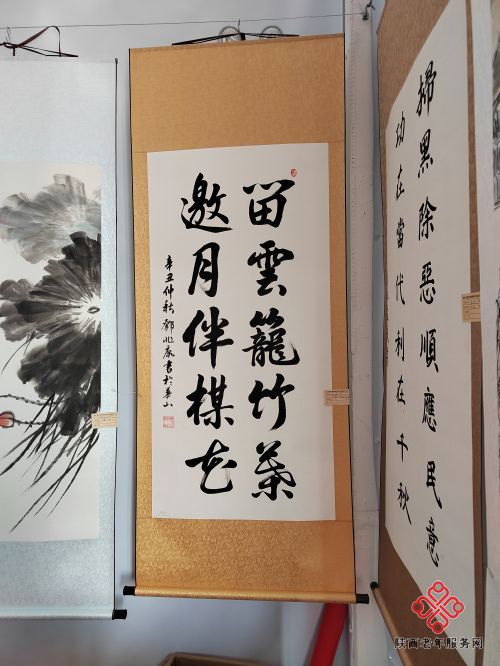 留雲籠竹葉
邀月伴楳花
辛丑仲秋鄧兆康書於華山
掃黑除惡順應民意
功在當代利在千秋
陕西老年服务网